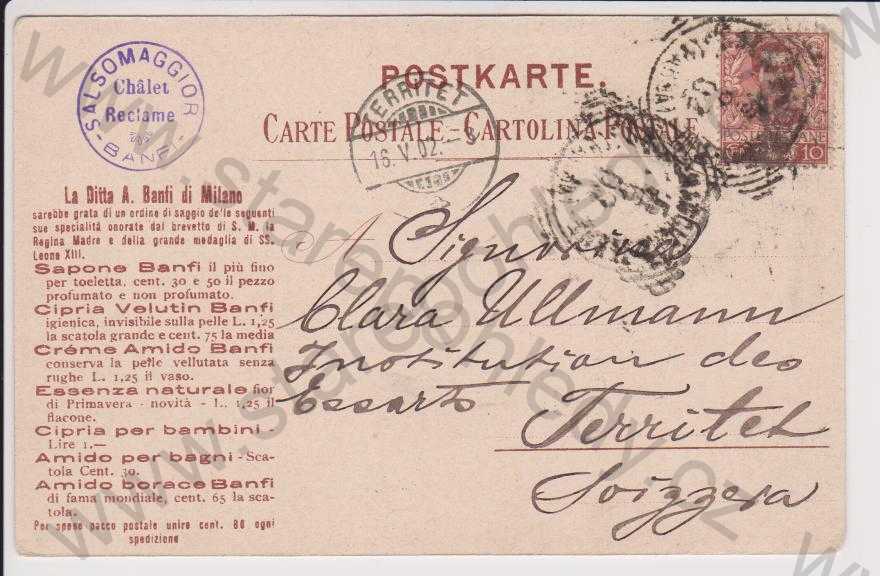 SALSOMAGGIOR
Châlet
Reclame
-BANFI-
POSTKARTE.
CARTE POSTALE - CARTOLINA POSTALE
TERRITET
16.V.02.-8
POSTE ITALIANE
10
La Ditta A. Banfi di Milano
sarebbe grata di un ordine di saggio delle seguenti
sue specialità onorate dal brevetto di S. M. la
Regina Madre e della grande medaglia di SS.
Leone XIII.
Sapone Banfi il più fino
per toeletta, cent. 30 e 50 il pezzo
profumato e non profumato.
Cipria Velutin Banfi
igienica, invisibile sulla pelle L. 1,25
la scatola grande e cent. 75 la media
Créme Amido Banfi
conserva la pelle vellutata senza
rughe L. 1,25 il vaso.
Essenza naturale fior
di Primavera - novità - L. 1,25 il
flacone.
Cipria per bambini -
Lire 1.—
Amido per bagni - Sca-
tola Cent. 30.
Amido borace Banfi
di fama mondiale, cent. 65 la sca-
tola.
Per spese pacco postale unire cent. 80 ogni
spedizione
A Signorina
Clara Ullmann
Institution des
Essarts
Territet
Svizzera
www.starepohledy.cz